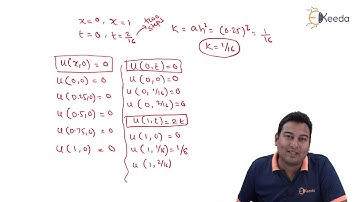 x=0, x=1
t=0, t=2/16
two steps
K = ah² = (0.25)² = 1/16
K=1/16
Ekeeda
u(x,0)=0
u(0,0)=0
u(0.25,0)=0
u(0.5,0)=0
u(0.75,0)=0
u(1,0)=0
u(0,t)=0
u(0,0)=0
u(0,1/16)=0
u(0,2/16)=0
u(1,t)=2t
u(1,0)=0
u(1,1/16)=1/8
u(1,2/16)